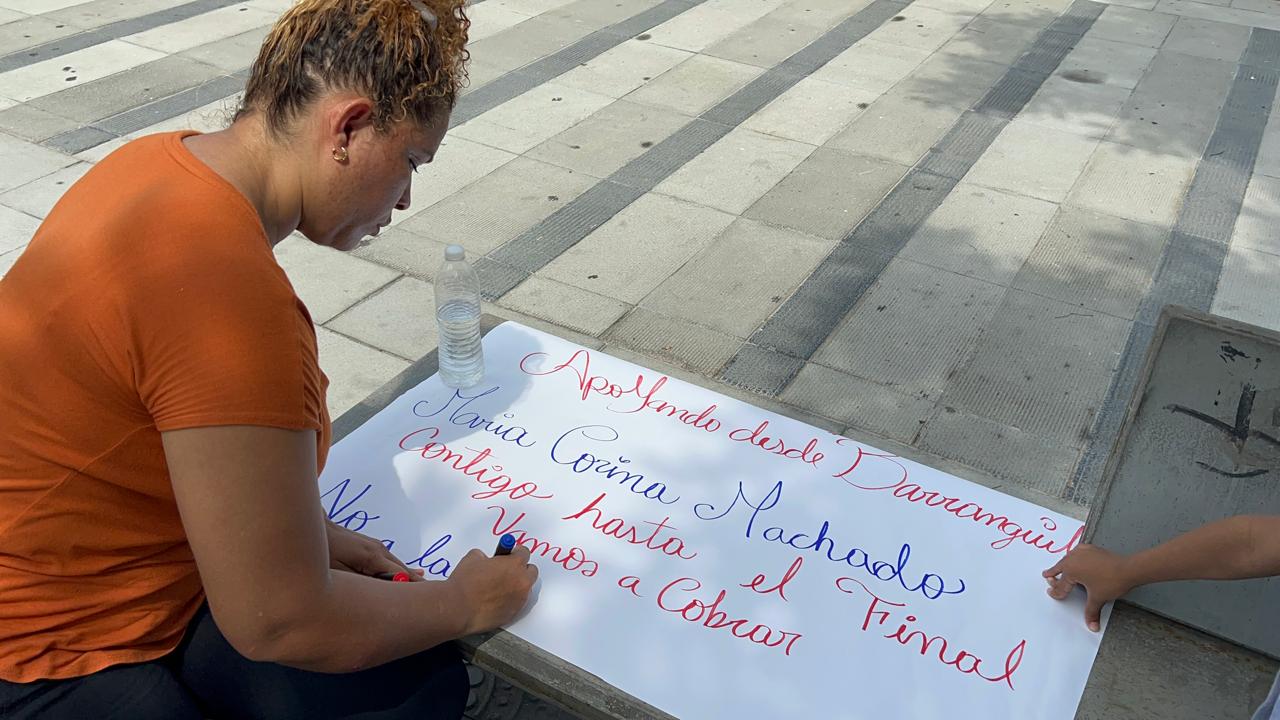 Apoyando desde Barrangüil
Maria Corina Machado
Contigo hasta el Final
Vamos a Cobrar
No a la